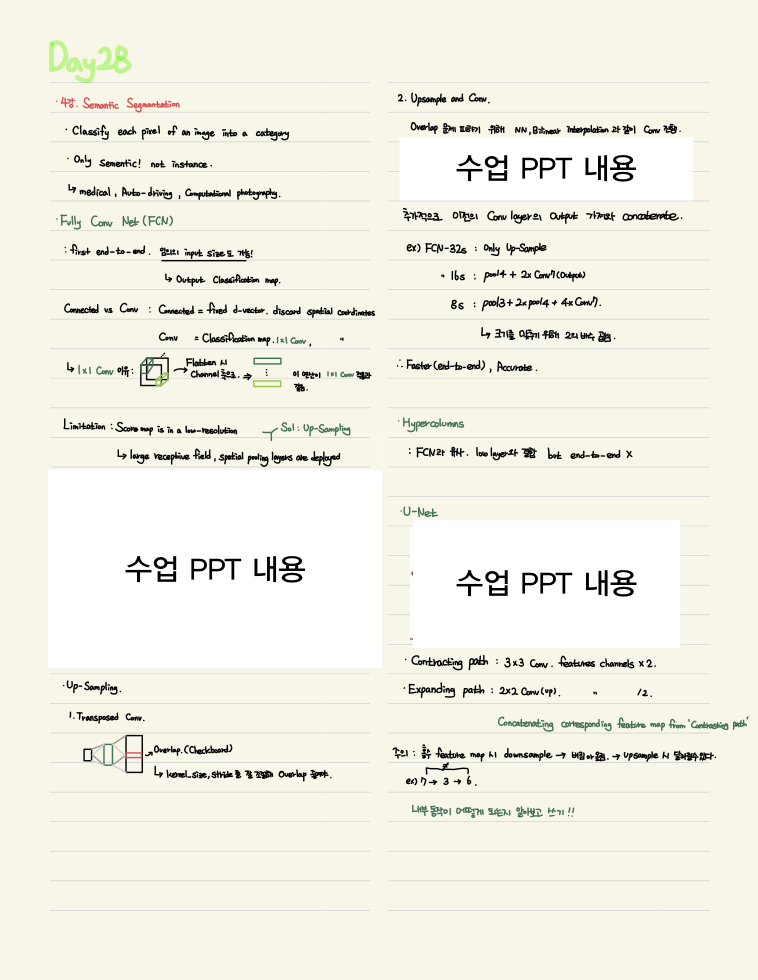 Day28
· 4강. Semantic Segmentation
· Classify each pixel of an image into a category
· Only sementic! not instance.
↳ medical, Auto-driving, Computational photography.
· Fully Conv Net (FCN)
: first end-to-end. 임의의 input size도 가능!
↳ Output Classification map.
Connected vs Conv : Connected = fixed d-vector. discord spatial coordinates
Conv = Classification map. 1x1 Conv, "
↳ 1x1 Conv 이유:
Flatten 시
Channel축으로. ⇒
이 연산이 1x1 Conv
같음.
Limitation : Score map is in a low-resolution
Sol : Up-Sampling
↳ large receptive field, spatial pooling layers are deployed
수업 PPT 내용
· Up-Sampling.
1. Transposed Conv.
→ Overlap. (Checkboard)
↳ kernel size, stride를 잘 조절해 Overlap
2. Upsample and Conv.
Overlap 문제 피하기 위해 NN, Bilinear interpolation과 같이 Conv 진행.
수업 PPT 내용
추가적으로 이전의 Conv layer의 Output 가져와 concatenate.
ex) FCN-32s : Only Up-Sample
" 16s : pool4 + 2x Conv7 (Output)
8s : pool3 + 2x pool4 + 4x Conv7.
↳ 크기를 맞추기 위해 2의 배수 곱함.
∴ Faster (end-to-end), Accurate.
· Hypercolumns
: FCN과 유사. low layer와 결합 but end-to-end X
· U-Net
수업 PPT 내용
· Contracting path : 3x3 Conv. features channels x2.
· Expanding path : 2x2 Conv (up). " /2.
Concatenating corresponding feature map from 'Contracting path'
주의 : 홀수 feature map 시 downsample → 버림 → Upsample 시 달라질수 있다.
≠
ex) 7 → 3 → 6.
내부 동작이 어떻게 되는지 알아보고 쓰기!!